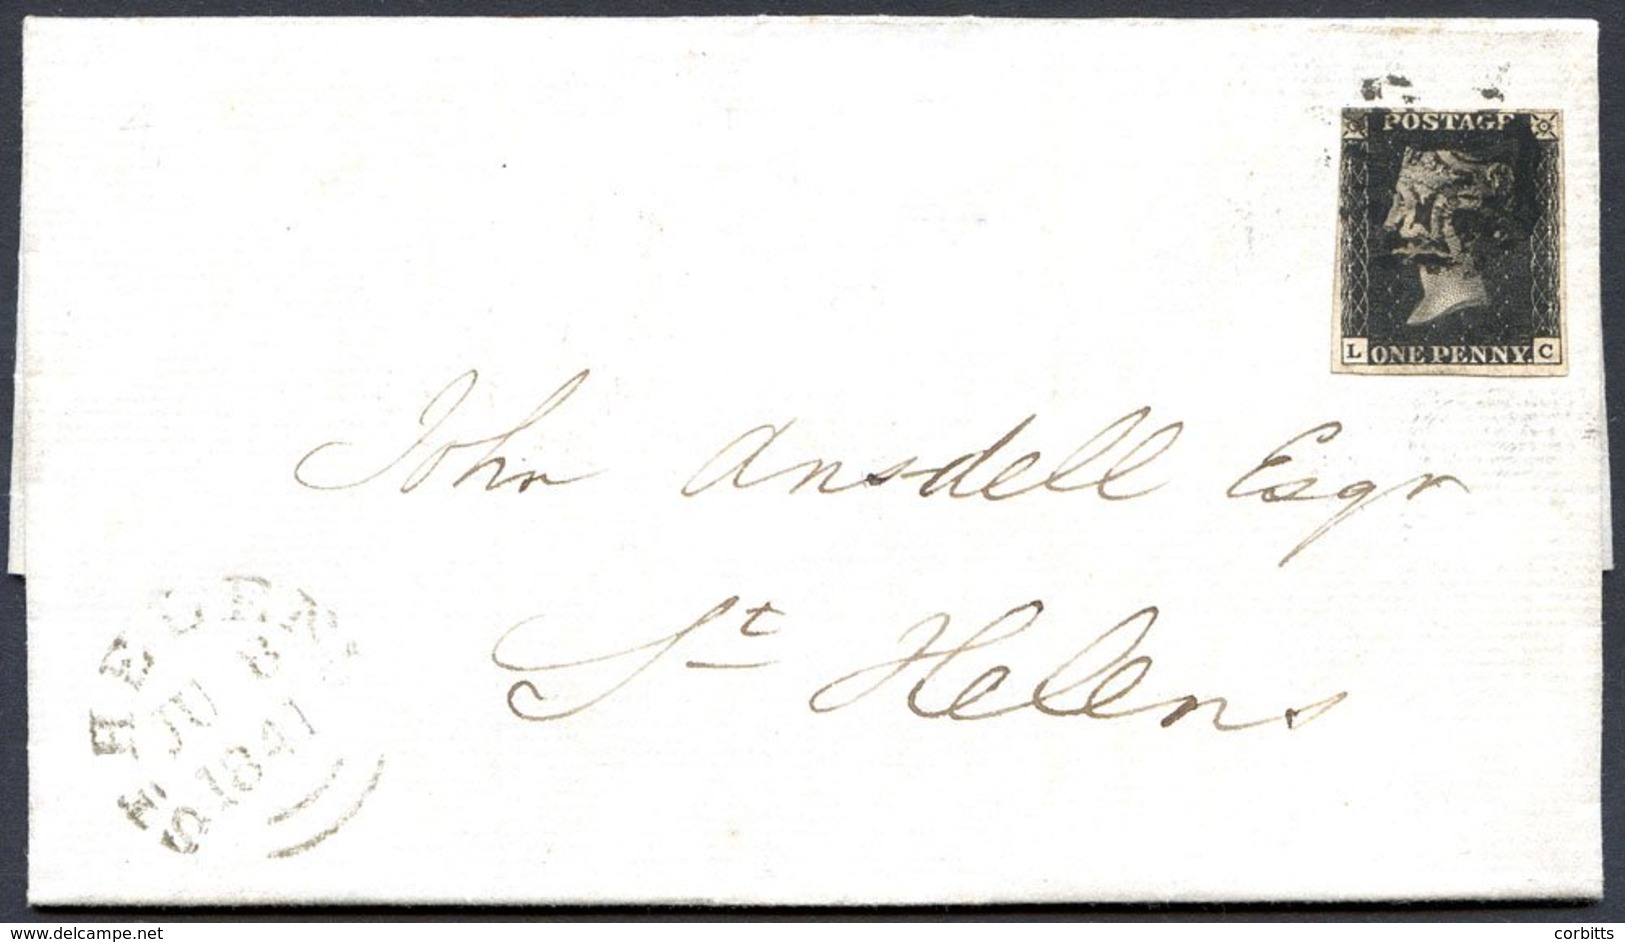 POSTAGE
L ONE PENNY. C
John Ansdell Esqr
St Helens
ST HELENS
JU 8
1841
www.delcampe.net
corbitts